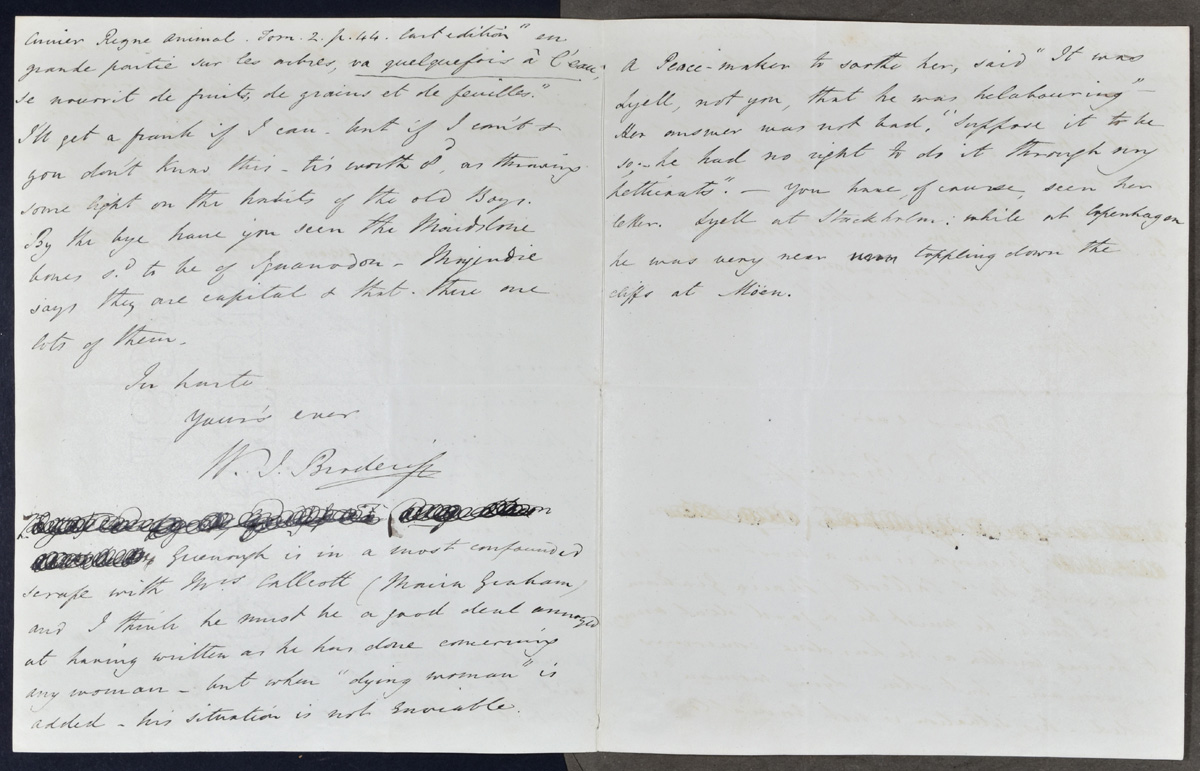 Cuvier Regne Animal. Tom. 2. p. 44. last edition "en
grande partie sur les arbres, va quelquefois à l'eau,
se nourrit de fruits, de grains et de feuilles."
I'll get a frank if I can. but if I can't &
you don't know this - tis worth 8d, as throwing
some light on the habits of the old Boys.
By the bye have you seen the Maidstone
bones sd to be of Iguanodon - Majendie
says they are capital & that there are
lots of them.
In haste
Your's ever
W. J. Broderip
Greenough is in a most confounded
scrape with Mrs Callcott (Maria Graham)
and I think he must be a good deal annoyed
at having written as he has done concerning
any woman - but when "dying woman" is
added - his situation is not enviable.
A Peace-maker to soothe her, said "It was
Lyell, not you, that he was belabouring" -
Her answer was not bad, "Suppose it to be
so - he had no right to do it through my
Petticoats". - You have, of course, seen her
letter. Lyell at Stockholm: while at Copenhagen
he was very near toppling down the
cliffs at Möen.